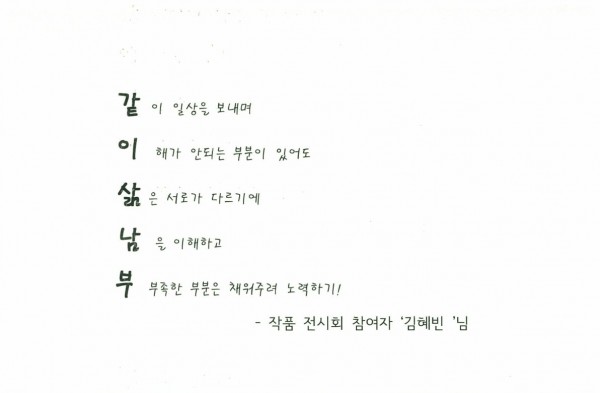 같 이 일상을 보내며
이 해가 안되는 부분이 있어도
삶 은 서로가 다르기에
남 을 이해하고
부 부족한 부분은 채워주려 노력하기!
- 작품 전시회 참여자 ‘김혜빈 ’님